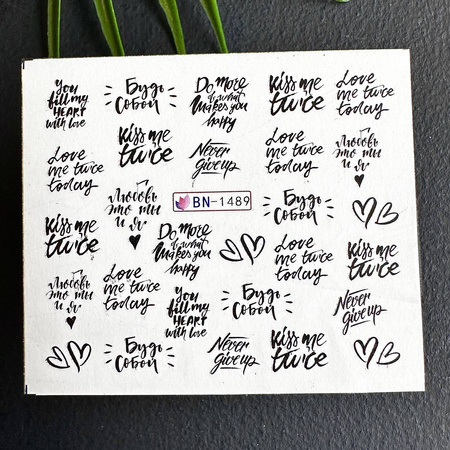 You
fill my
HEART
with love
Будь
собой
Do more
of what
Makes you
happy
Kiss me
twice
Love
me twice
today
Love
me twice
today
Kiss me
twice
Never
give up
Love
me twice
today
Любовь
это ты
и я
Любовь
это ты
и я
BN-1489
Будь
собой
Kiss me
twice
Do more
of what
Makes you
happy
Love
me twice
today
Kiss me
twice
Любовь
это ты
и я
Love
me twice
today
You
fill my
HEART
with love
Будь
собой
Never
give up
Будь
собой
Never
give up
Kiss me
twice